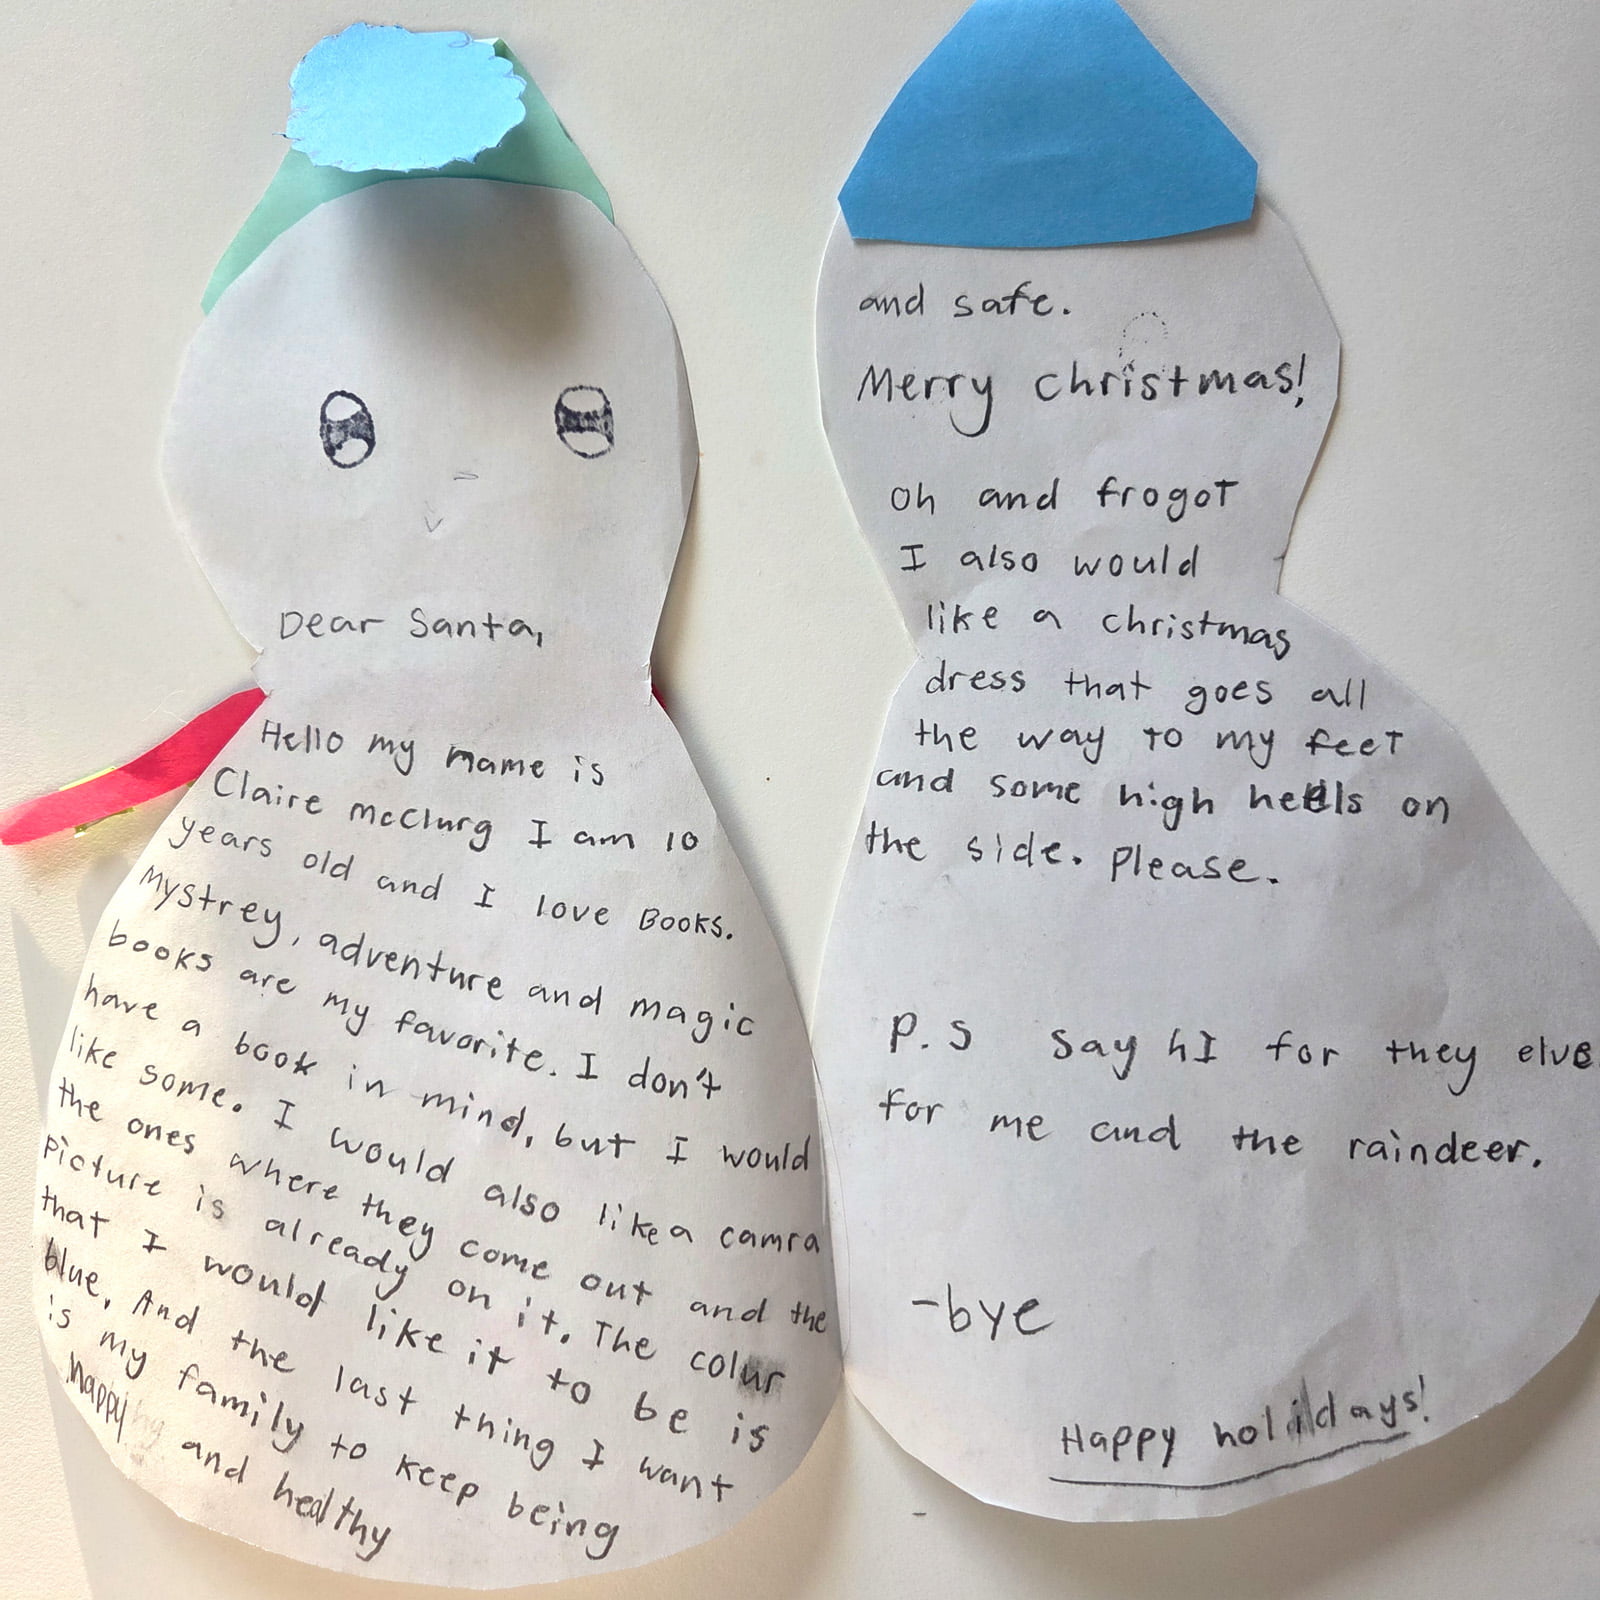 Dear Santa,
Hello my name is
Claire McClurg I am 10
years old and I love Books.
Mystrey, adventure and magic
books are my favorite. I don't
have a book in mind, but I would
like some. I would also like a camra
the ones where they come out and the
picture is already on it. The colur
that I would like it to be is
blue. And the last thing I want
is my family to keep being
happy and healthy
and safe.
Merry christmas!
oh and frogot
I also would
like a christmas
dress that goes all
the way to my feet
and some high heels on
the side. Please.
P.S Say hI for they elve
for me and the raindeer.
-bye
Happy holidays!